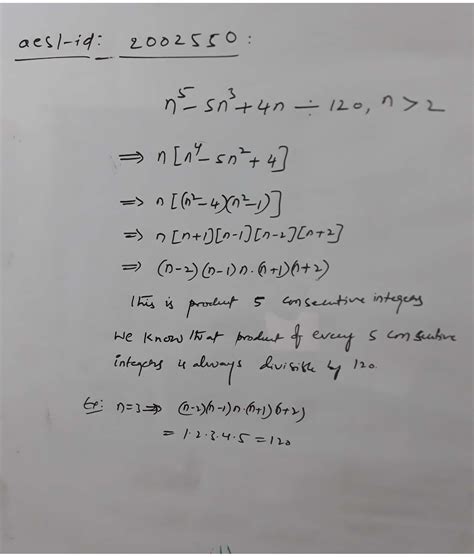 aesl-id: 2002550:
n⁵-5n³+4n ÷ 120, n>2
⇒ n[n⁴-5n²+4]
⇒ n[(n²-4)(n²-1)]
⇒ n[n+1][n-1][n-2][n+2]
⇒ (n-2)(n-1)n.(n+1)(n+2)
This is product 5 consecutive integers
We know that product of every 5 consecutive
integers is always divisible by 120.
Ex: n=3⇒ (n-2)(n-1)n.(n+1)(n+2)
= 1.2.3.4.5 = 120